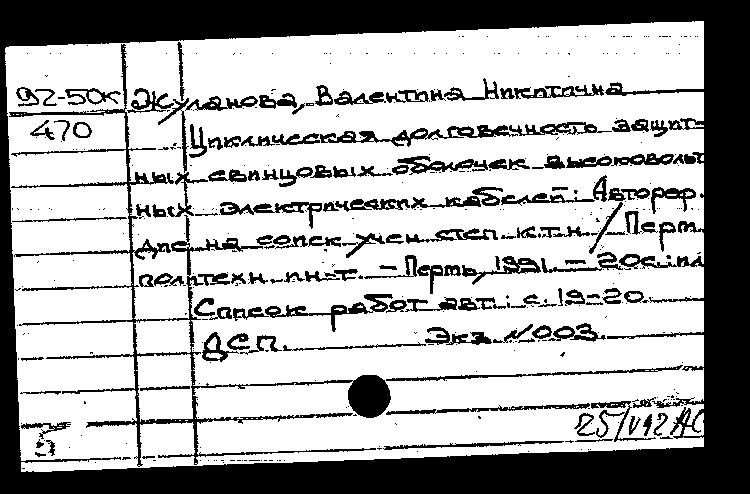 92-50к Жуланова, Валентина Никитична
470 Циклическая долговечность защит-
ных свинцовых оболочек высоковольт
ных электрических кабелей: Автореф.
дис на соиск учен степ. к.т.н. / Перм.
политехн. ин-т. – Пермь, 1991. – 20с.: ил
Список работ авт.: с. 19-20.
ДСП. Экз. №003.
5
25/V 92 АС